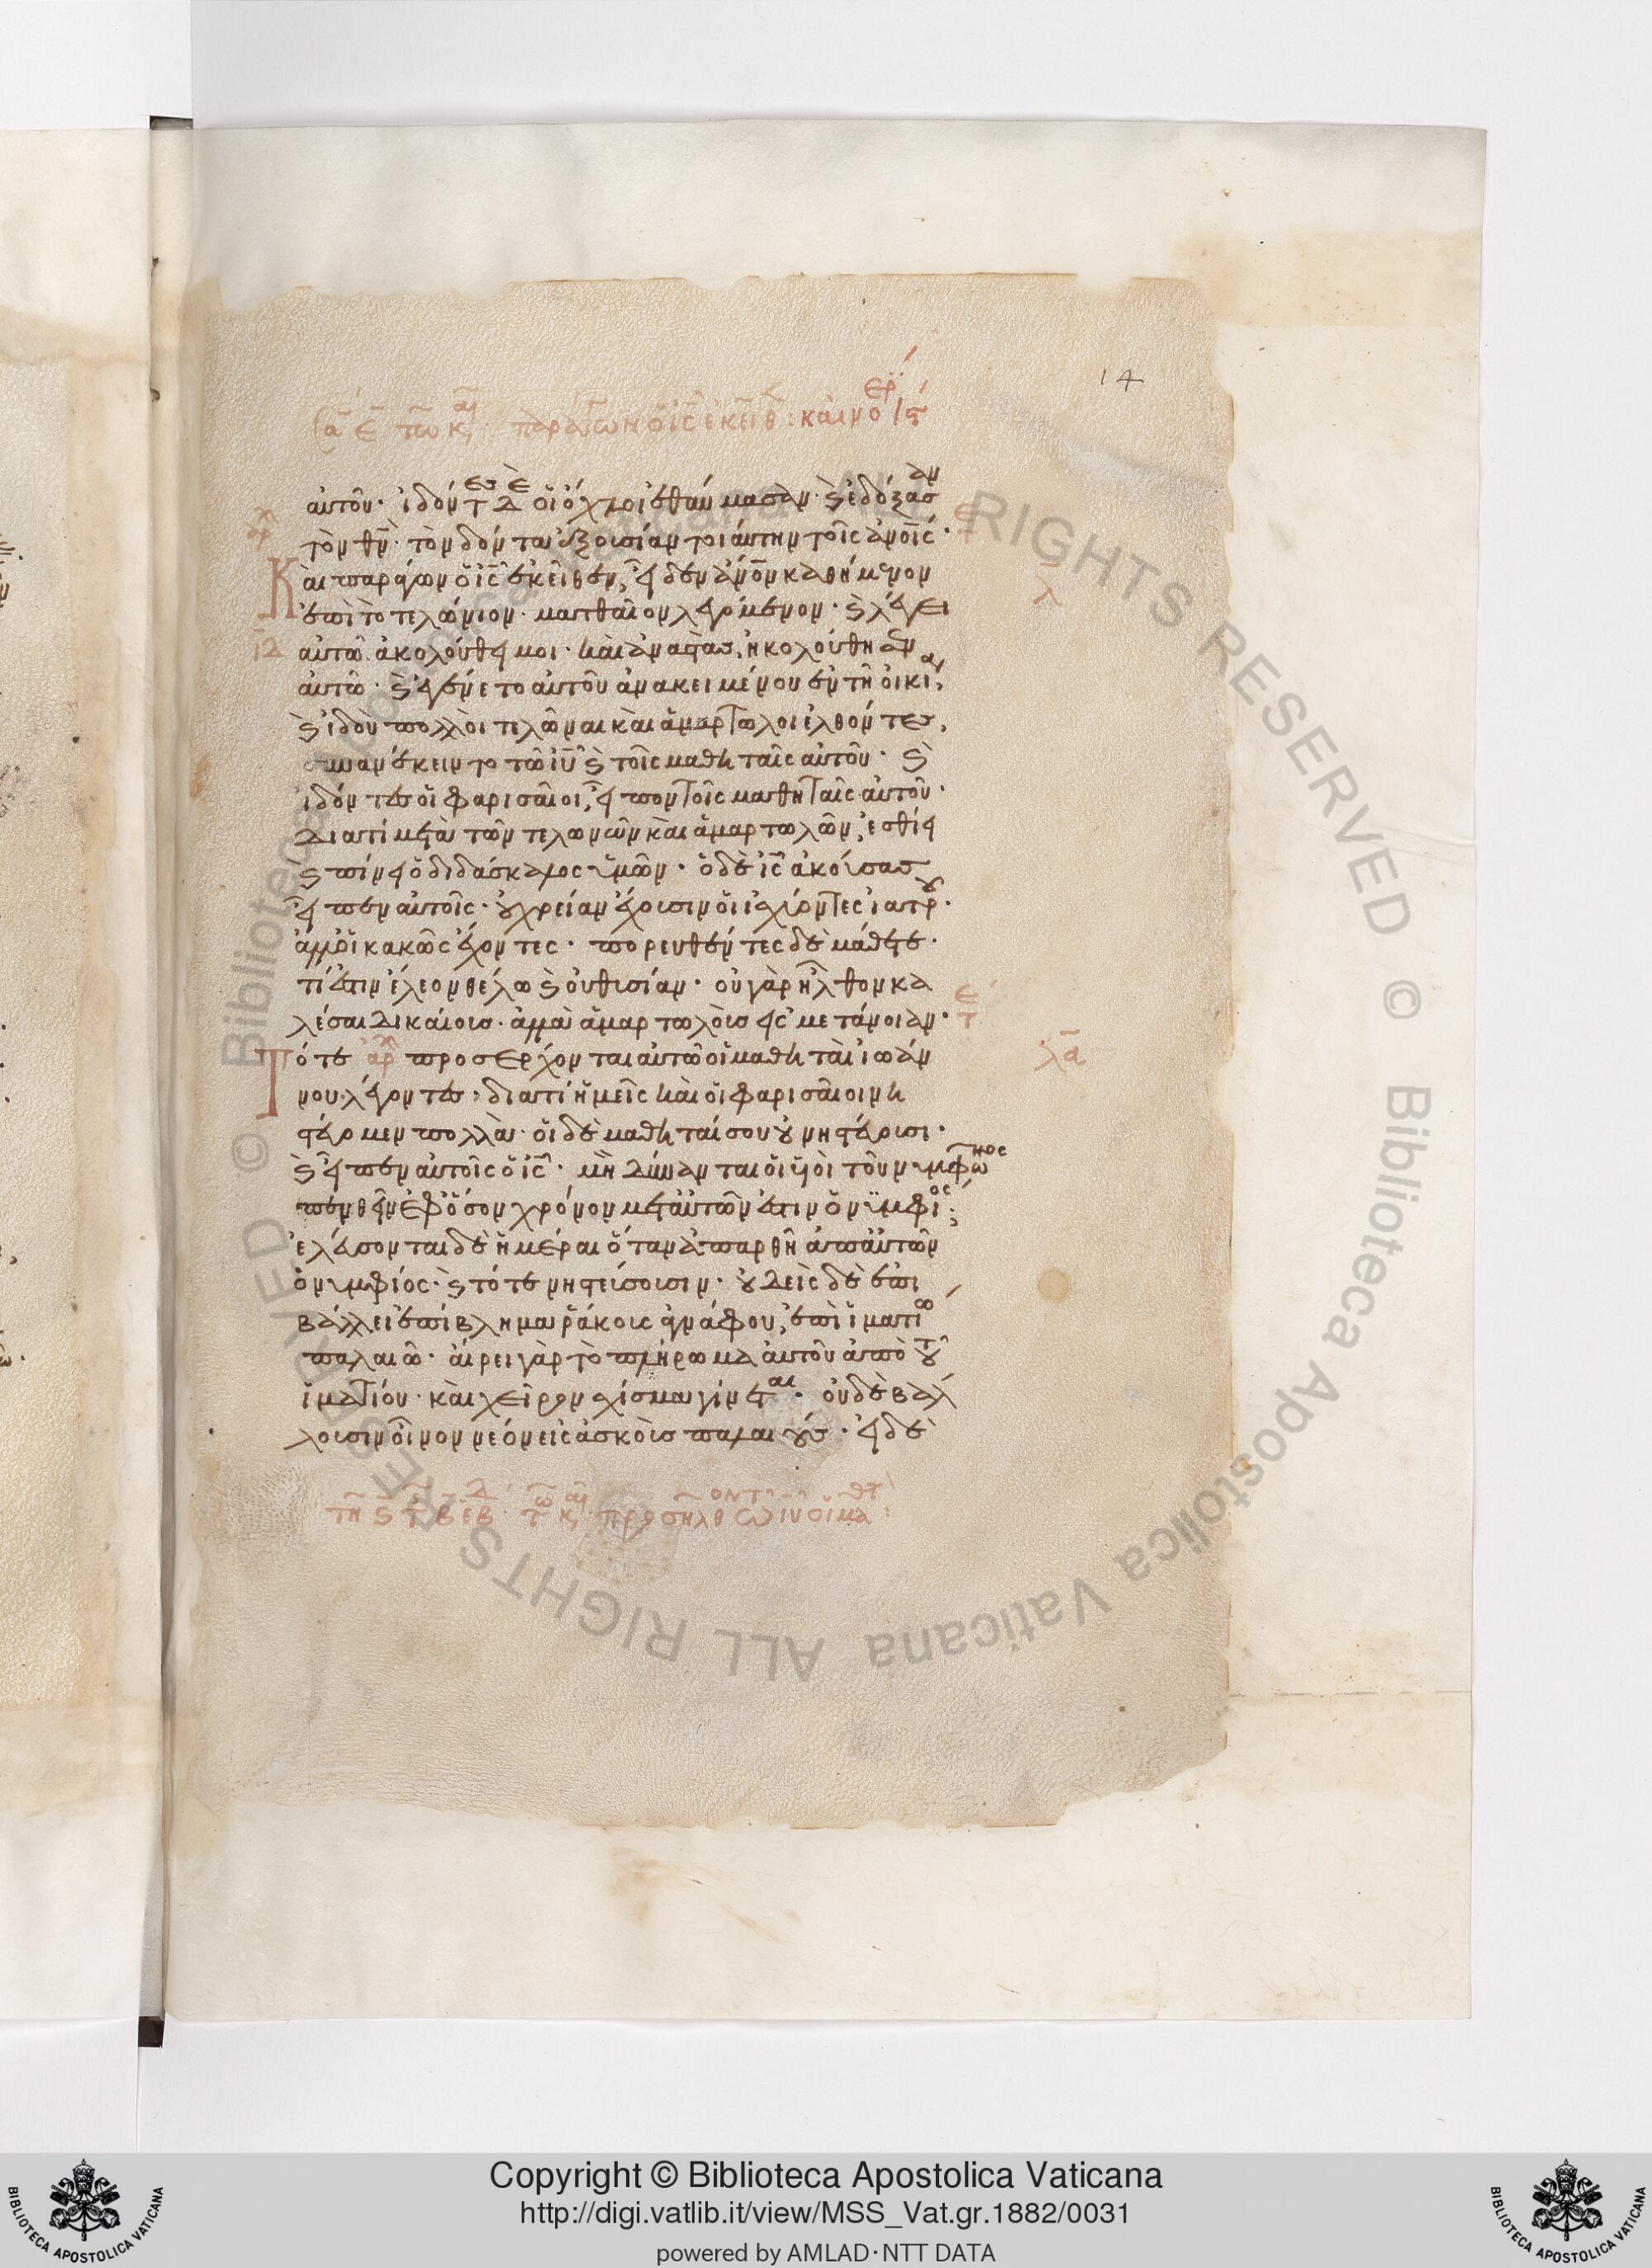 14
αὐτοῦ· ἰδόντες δὲ οἱ ὄχλοι ἐθαύμασαν· ϗ ἐδόξασαν
τὸν θ̅ν̅· τὸν δόντα ἐξουσίαν τοιάυτην τοῖς ἀν̅οις·
Κὰι παράγων ὁ ι̅ς̅ ἐκεῖθεν, εἶδεν ἀν̅ον καθήμενον
ἐπὶ τὸ τελώνιον· ματθαῖον λεγόμενον· ϗ λέγει
αὐτῶ ἀκολούθει μοι· κὰι ἀναστὰς, ἠκολούθησεν
αὐτῶ· ϗ ἐγένετο αὐτοῦ ἀνακειμένου ἐν τῆ οἰκία,
ϗ ἰδοὺ πολλὸι τελῶναι κὰι ἁμαρτωλοι ἐλθόντες,
συνανέκειντο τῶ ι̅υ̅ ϗ τοῖς μαθηταῖς αὐτοῦ· ϗ
ἰδόντες οἱ φαρισαῖοι, εἶπον τοῖς μαθηταῖς αὐτοῦ·
διατί μετὰ τῶν τελωνῶν κὰι ἁμαρτωλῶν, ἐσθίει
ϗ πίνει ὁ διδάσκαλος ὑμῶν· ὁ δὲ ι̅ς̅ ἀκούσας
εἶπεν αὐτοῖς· οὐ χρείαν ἔχουσιν οἱ ἰσχύοντες ἰατροῦ·
ἀλλ' οἱ κακῶς ἔχοντες· πορευθέντες δὲ μάθετε·
τί ἐστιν ἔλεον θέλω ϗ οὐ θυσίαν· οὐ γὰρ ἦλθον κα
λέσαι δικαίους· ἀλλὰ ἁμαρτωλοὺς εἰς μετάνοιαν·
Τότε προσέρχονται αὐτῶ οἱ μαθηταὶ ἰωάν
νου λέγοντες, διατί ἡμεῖς κὰι οἱ φαρισαῖοι νη
στεύομεν πολλὰ· οἱ δὲ μαθηταί σου οὐ νηστεύουσι·
ϗ εἶπεν αὐτοῖς ὁ ι̅ς̅· μὴ δύνανται οἱ υἱοὶ τοῦ νυμφῶνος
πενθεῖν ἐφ' ὅσον χρόνον μετ' αὐτῶν ἐστιν ὁ νυμφίος;
ἐλεύσονται δὲ ἡμέραι ὅταν ἀπαρθῆ ἀπ' αὐτῶν
ὁ νυμφίος· ϗ τότε νηστεύσουσιν· οὐδεὶς δὲ ἐπι
βάλλει ἐπίβλημα ῥάκους ἀγνάφου, ἐπὶ ἱματίω
παλαιῶ· αἴρει γὰρ τὸ πλήρωμα αὐτοῦ ἀπὸ τοῦ
ἱματίου· κὰι χεῖρον σχίσμα γίνεται· οὐδὲ βάλ
λουσιν οἶνον νέον εἰς ἀσκοὺς παλαιούς· εἰ δὲ
Copyright © Biblioteca Apostolica Vaticana
http://digi.vatlib.it/view/MSS_Vat.gr.1882/0031
powered by AMLAD·NTT DATA